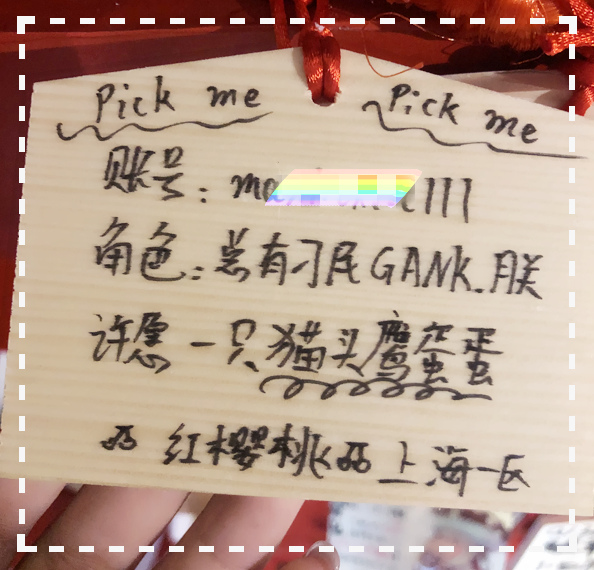 Pick me Pick me
账号: m 111
角色: 总有刁民GANK.朕
许愿 一只猫头鹰蛋蛋
红樱桃 上海一区